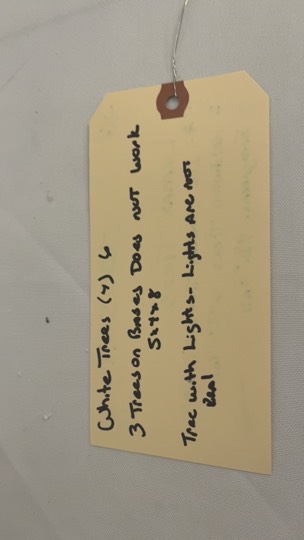 White Trees (4) 6
3 Trees on Bases Does not work
5x4x8
Tree with Lights - Lights Are not
real